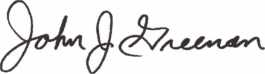 John J. Greenan